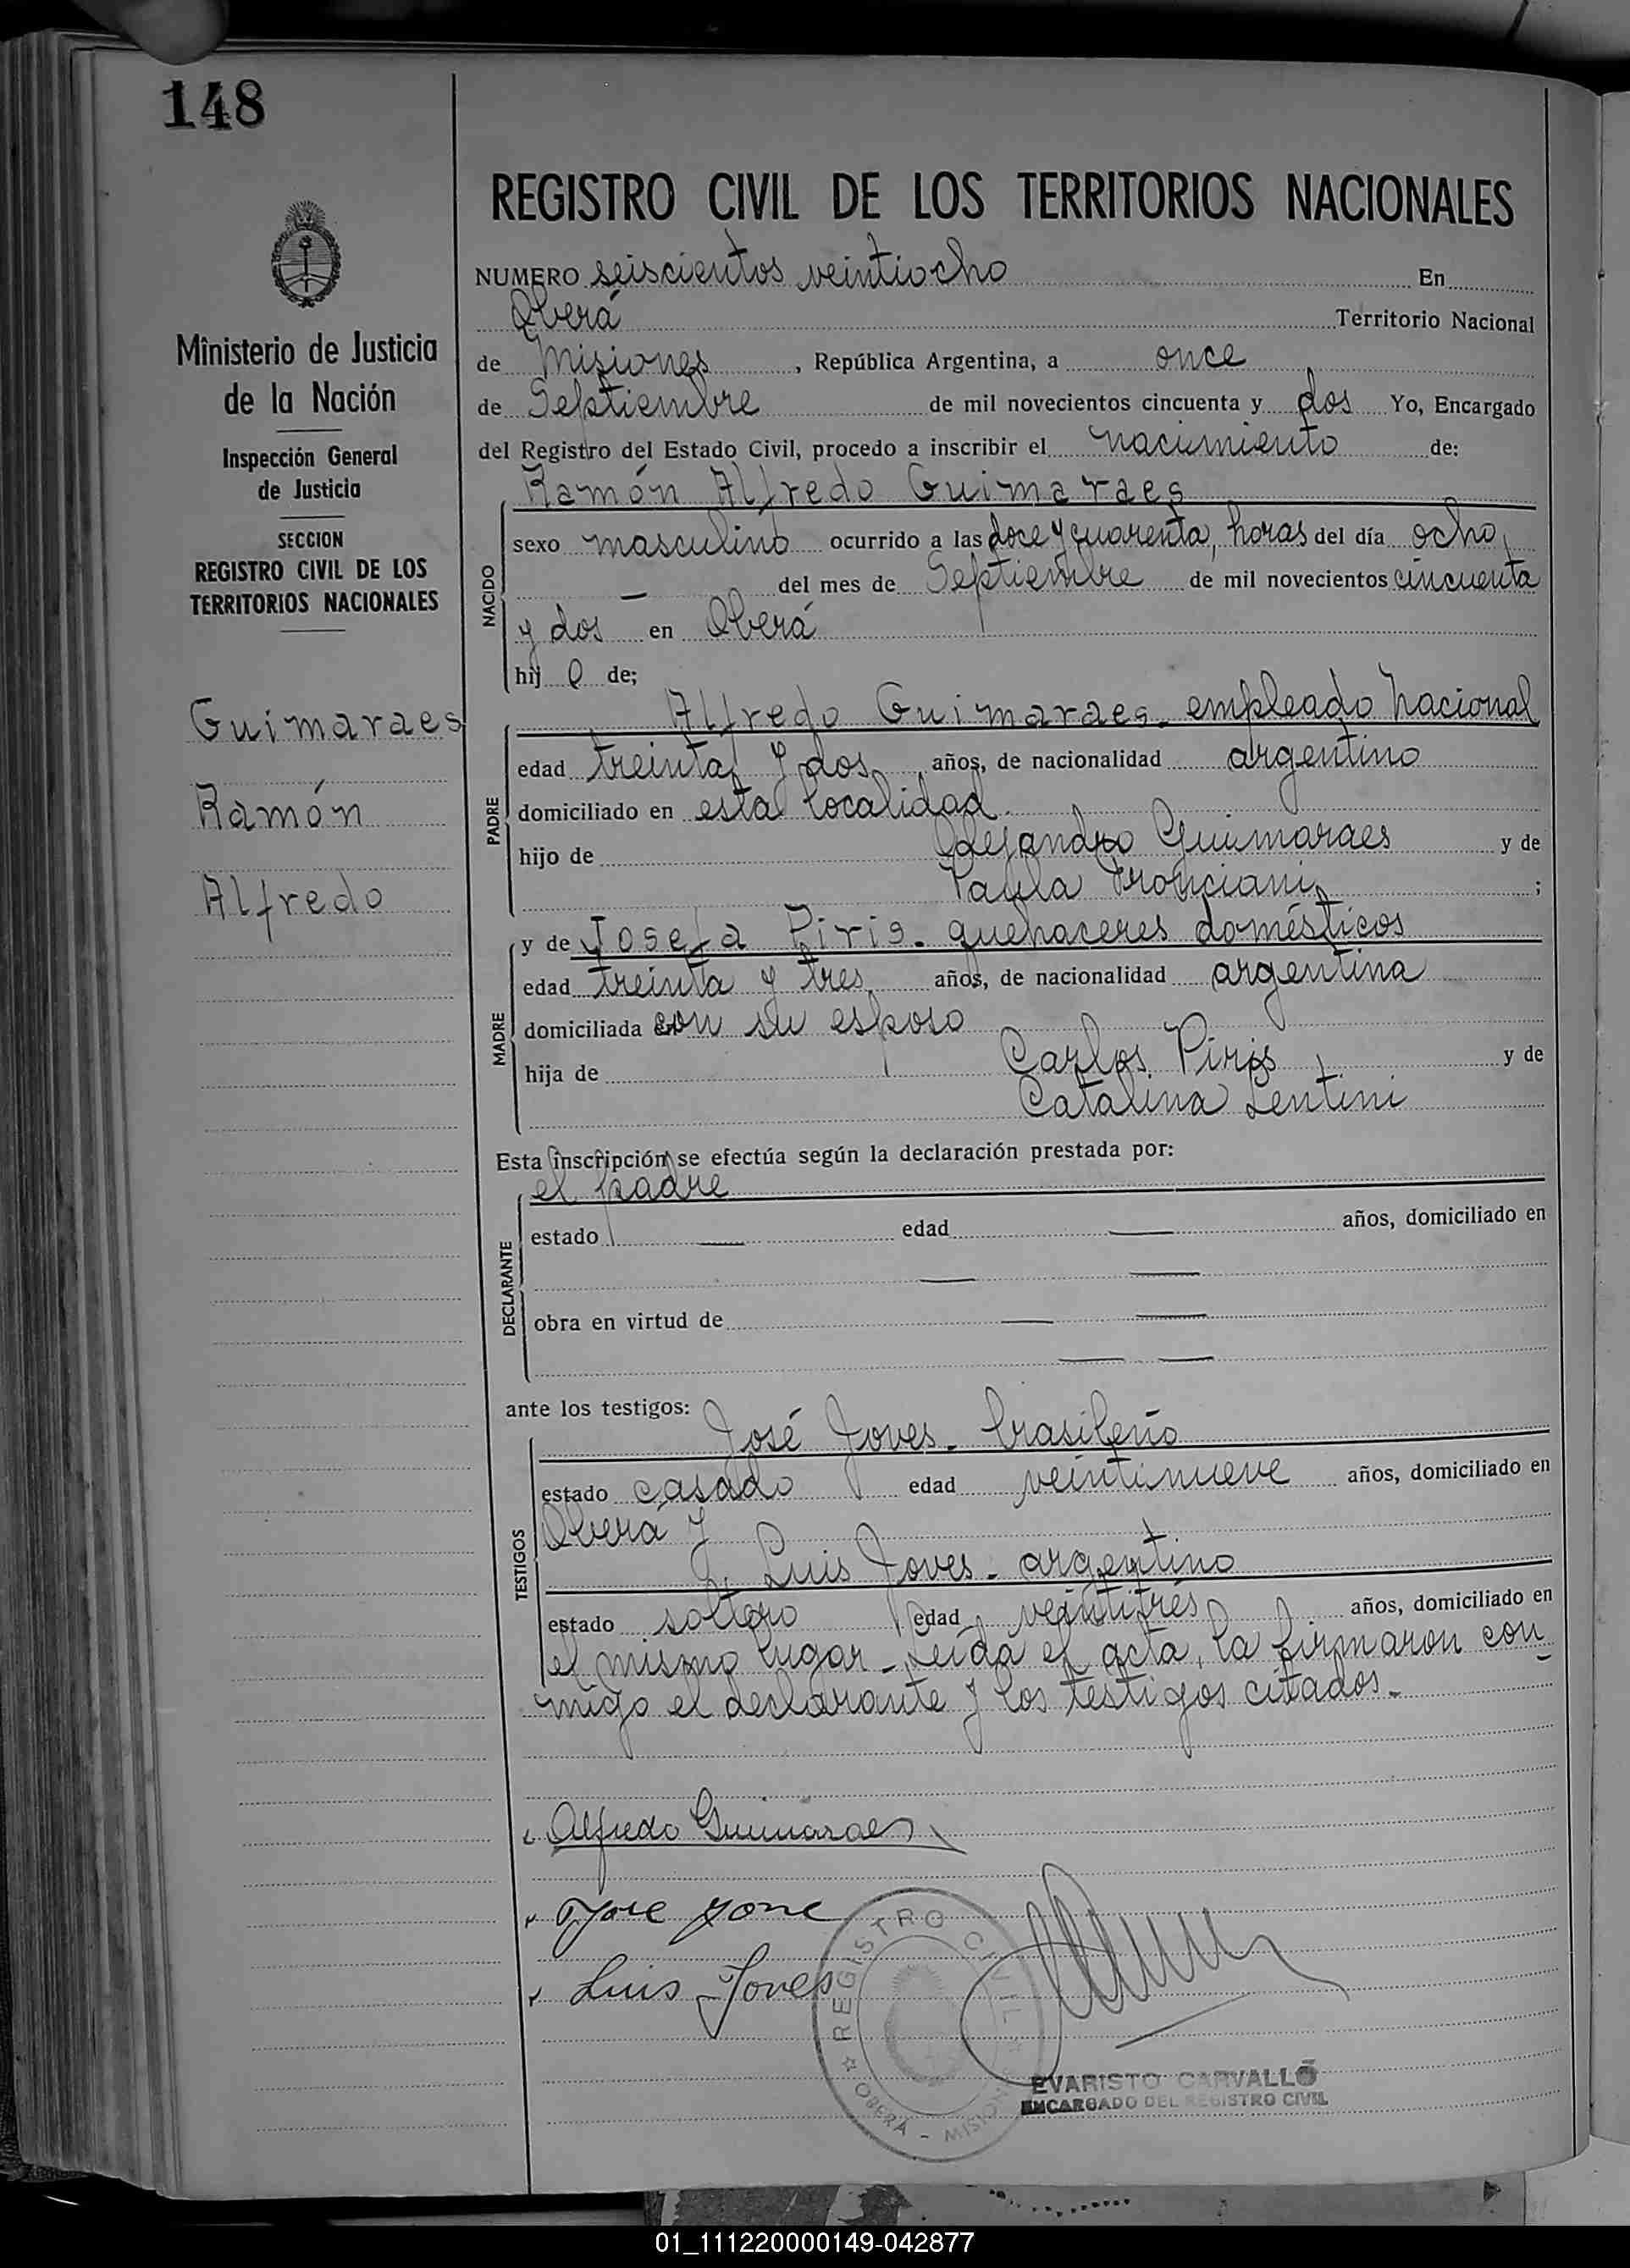 148
REGISTRO CIVIL DE LOS TERRITORIOS NACIONALES
Ministerio de Justicia
de la Nación
Inspección General
de Justicia
SECCION
REGISTRO CIVIL DE LOS
TERRITORIOS NACIONALES
Guimaraes
Ramón
Alfredo
NUMERO seiscientos veintiocho En
Oberá Territorio Nacional
de Misiones, República Argentina, a once
de Septiembre de mil novecientos cincuenta y dos Yo, Encargado
del Registro del Estado Civil, procedo a inscribir el nacimiento de:
Ramón Alfredo Guimaraes
NACIDO
sexo masculino ocurrido a las doce y cuarenta, horas del día ocho,
— del mes de Septiembre de mil novecientos cincuenta
y dos en Oberá
hij o de;
Alfredo Guimaraes- empleado nacional
PADRE
edad treinta y dos años, de nacionalidad argentino
domiciliado en esta localidad.
hijo de Alejandro Guimaraes y de
Paula ;
MADRE
y de Josefa Piris- quehaceres domésticos
edad treinta y tres años, de nacionalidad argentina
domiciliada con su esposo
hija de Carlos Piris y de
Catalina Lentini
Esta inscripción se efectúa según la declaración prestada por:
el padre
DECLARANTE
estado — edad — años, domiciliado en
— —
obra en virtud de — —
— —
ante los testigos:
José Joves- brasileño
TESTIGOS
estado casado edad veintinueve años, domiciliado en
Oberá y
Luis Joves- argentino
estado soltero edad veintitrés años, domiciliado en
el mismo lugar- Leída el acta, la firmaron con-
migo el declarante y los testigos citados.-
Alfredo Guimaraes
Jose Jove
Luis Joves
REGISTRO CIVIL
OBERÁ - MISIONES
EVARISTO CARVALLO
ENCARGADO DEL REGISTRO CIVIL
01_111220000149-042877